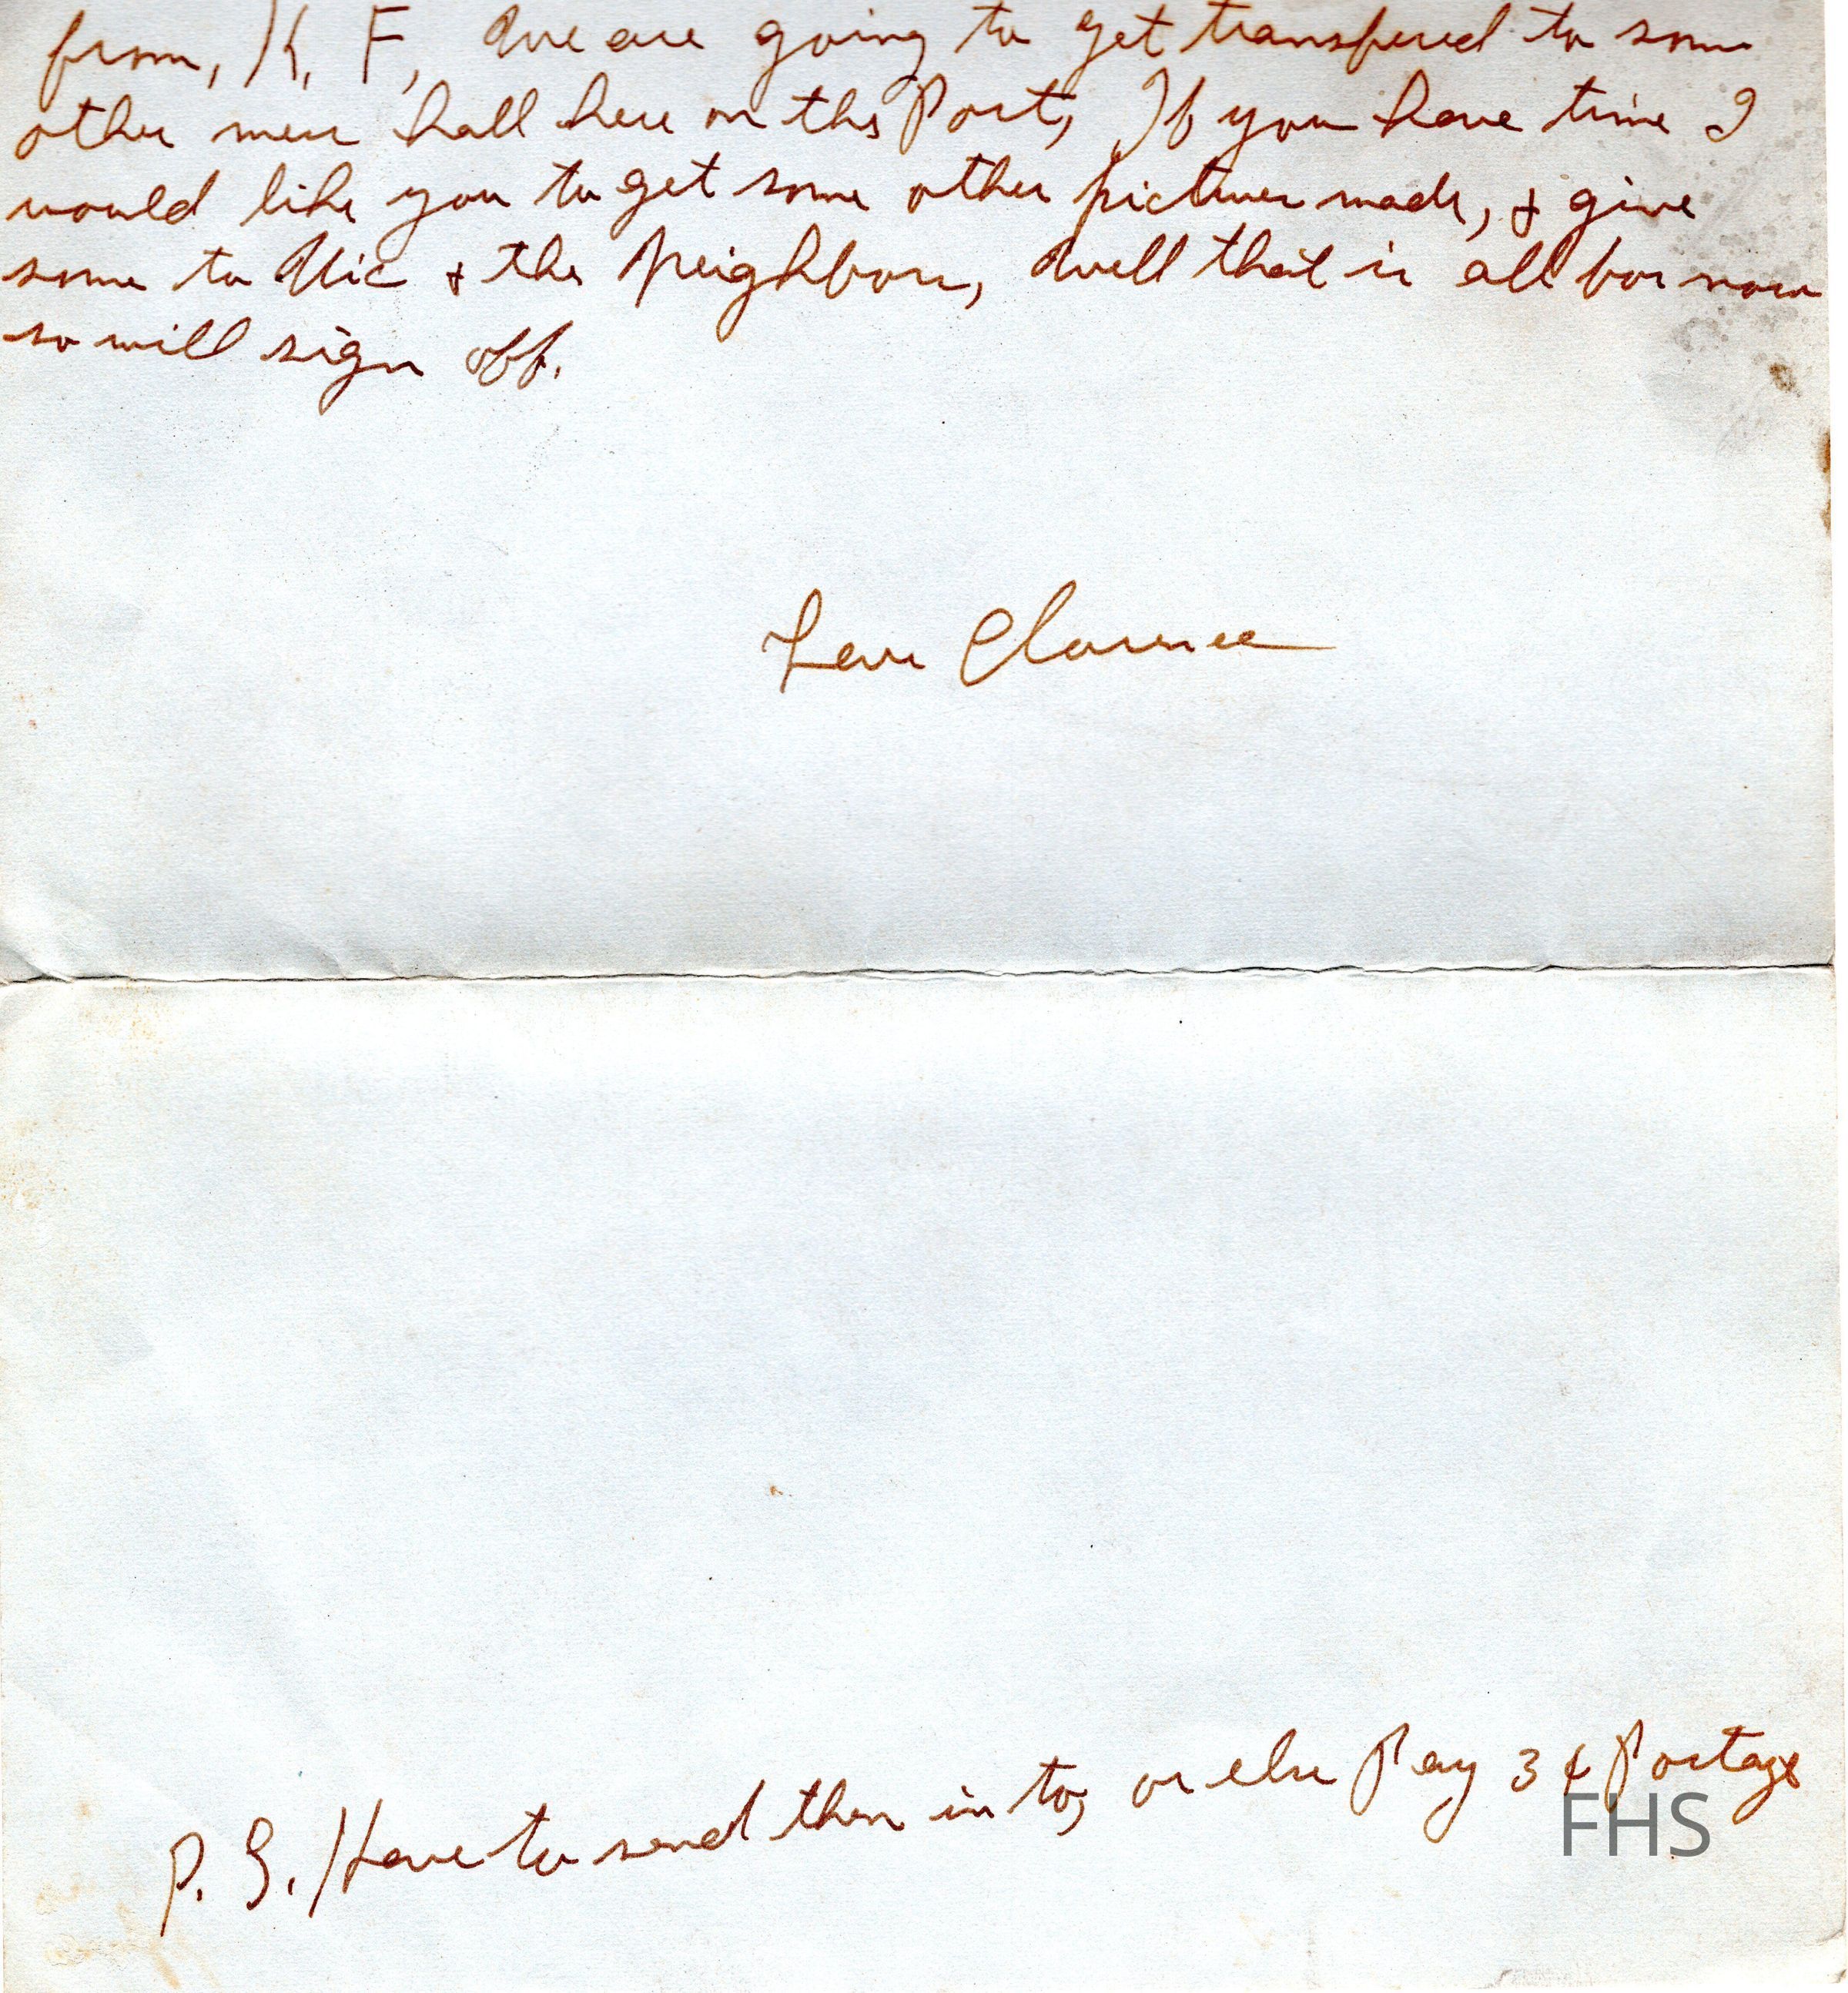 from, K. F, We are going to get transfered to some
other mess hall here on the Post, If you have time I
would like you to get some other pictures made, & give
some to Vic & the Neighbors, Well that is all for now
so will sign off.
Love Clarence
P. S. Have to send them in to, or else Pay 3¢ Postage
FHS